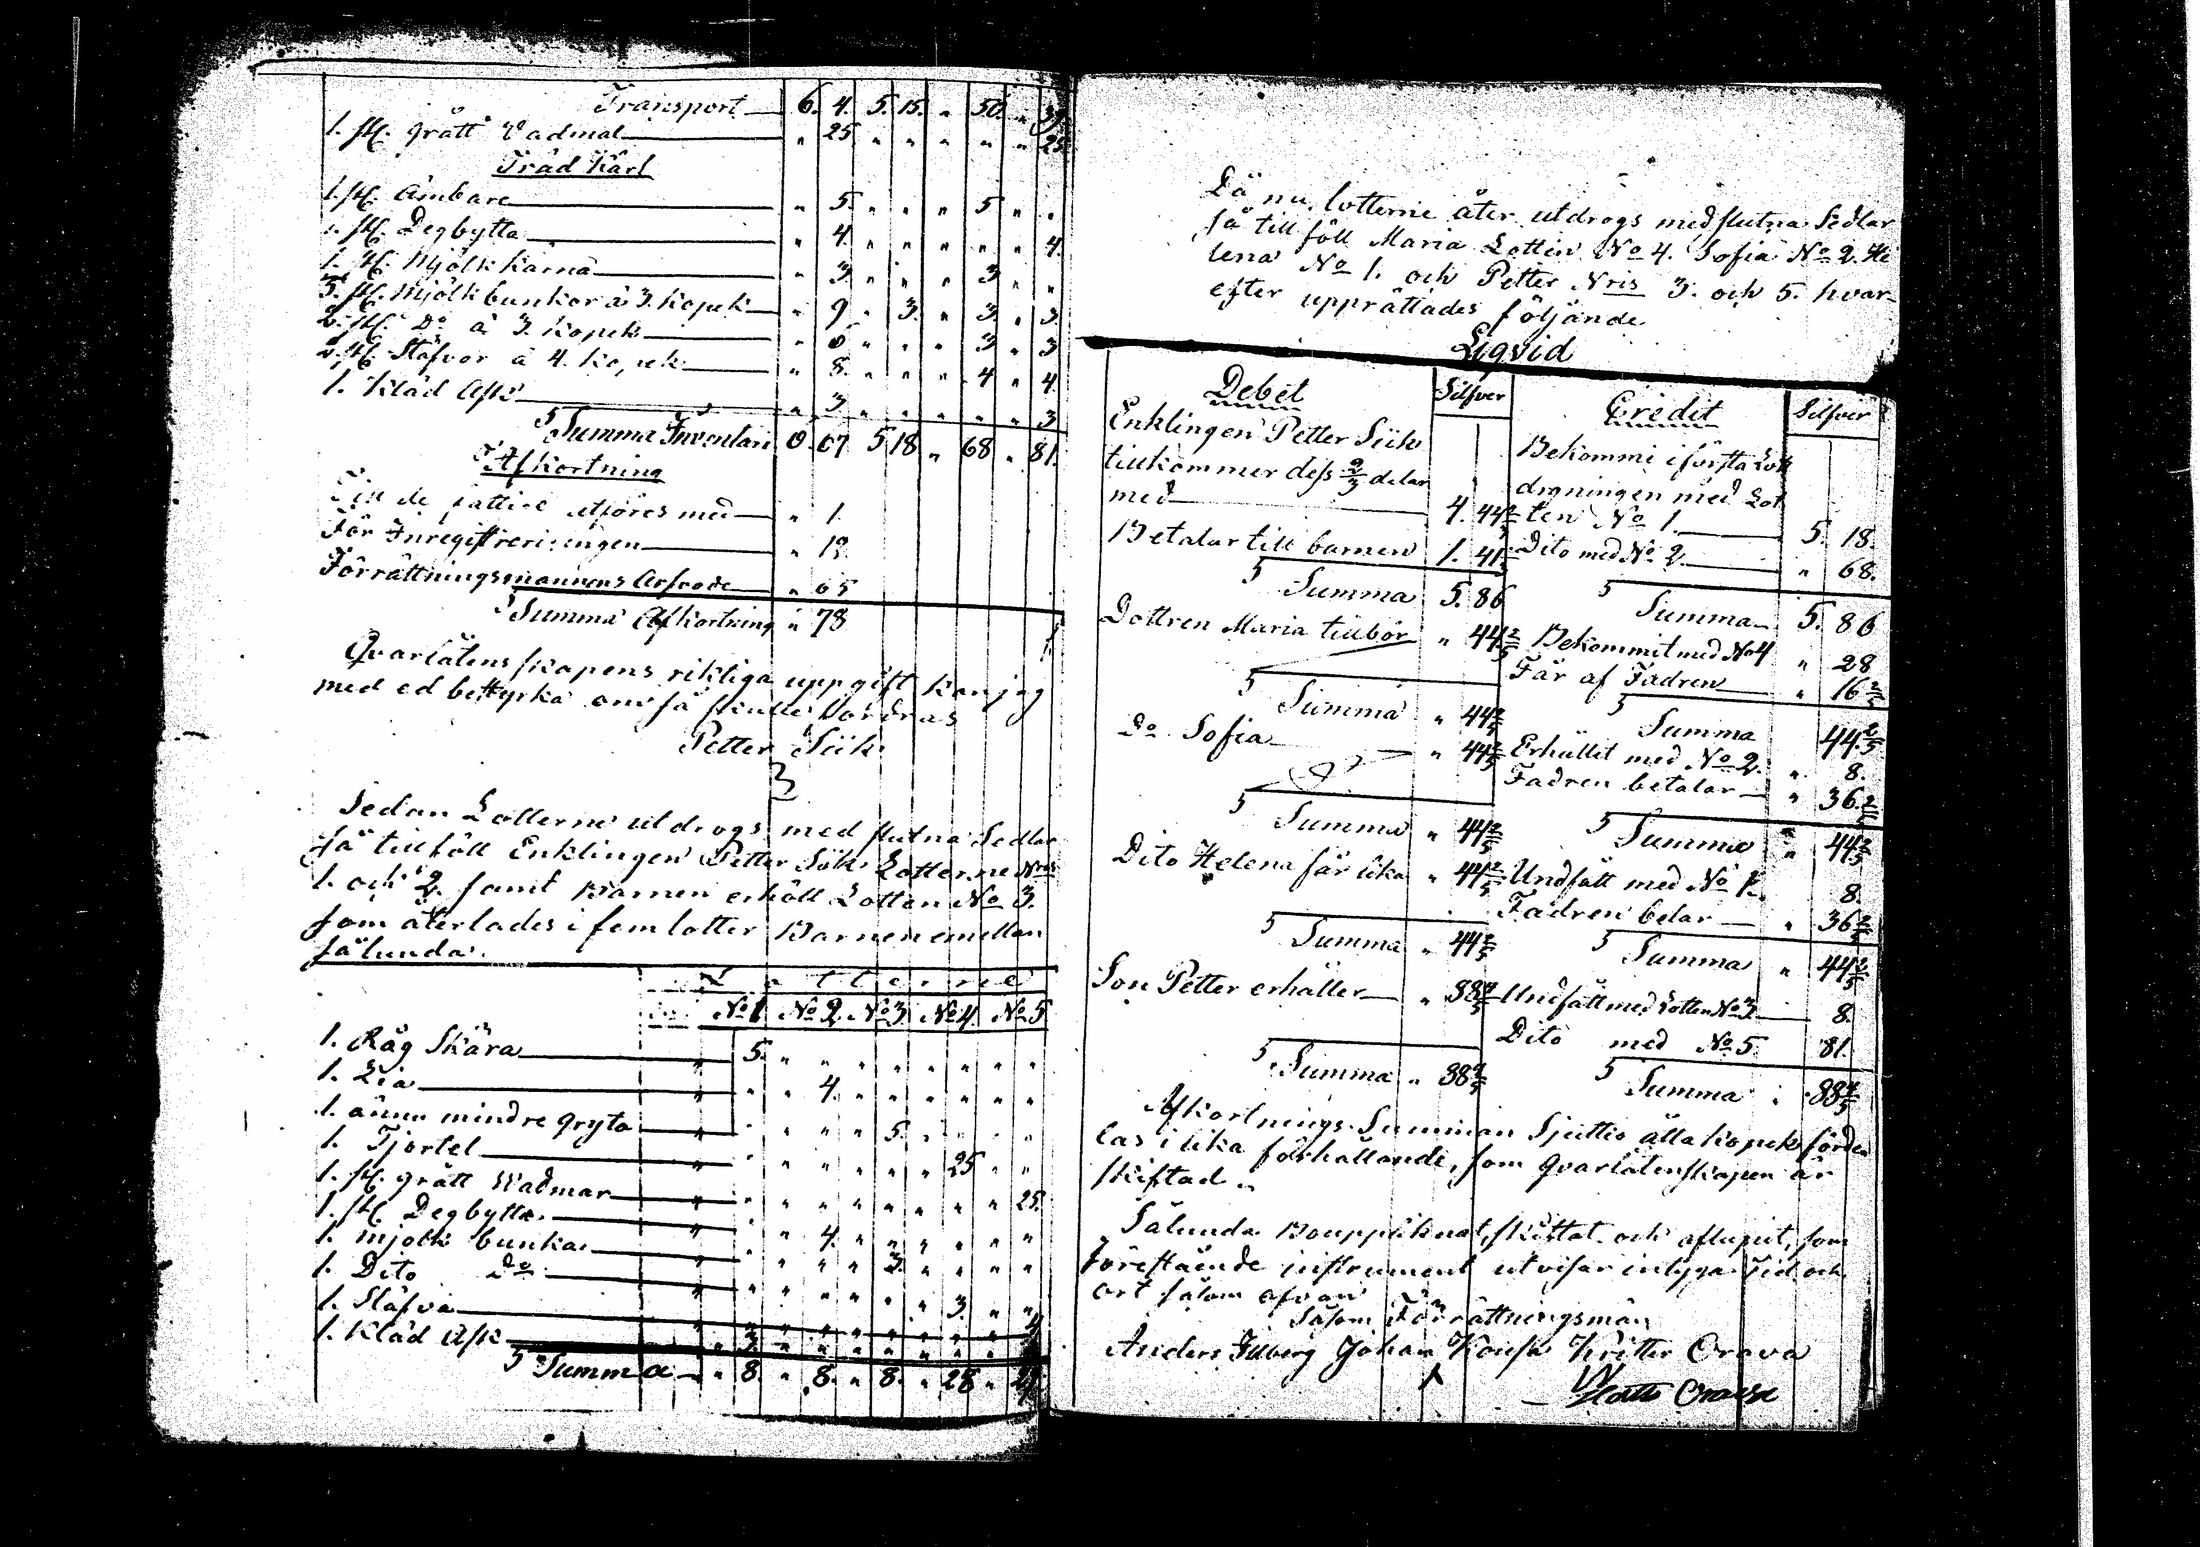 Transport 6. 4. 5. 15. " 50. " 39
1. st. grått Vadmal " 25 " " " " " 25
Träd Kärl
1. st. Ämbare " 5. " " " 5 " "
1. st. Degbytta " 4. " " " " " 4.
1. st. Mjölk Kärna " 3. " " " 3. " "
3. st. Mjölkbunkor à 3. Kopek " 9 " 3. " 3. " 3.
2. st. Do à 3. Kopek " 6 " " " 3 " 3
2. st. Stäfvor à 4. Kopek " 8. " " " 4 " 4.
1. Kläd Ask " 3 " " " " " 3
Summa Inventari 67 5 18 " 68 " 81.
Afkortning
Till de fattige afföres med " 1.
För Inregistreringen " 12.
Förrättningsmannens Arfvode " 65
Summa Afkortning " 78
Qvarlåtenskapens riktiga uppgift kan jag
med ed bestyrka om så skulle fordras
Petter Siik
Sedan Lotterne utdrogs med slutna Sedlar
så tillföll Enklingen Petter Siik Lotterne Nris
1. och 2. samt Barnen erhöll Lotten No 3.
som återlades i fem lotter Barnen emellan
sålunda.
Lotterne
No 1 No 2 No 3 No 4 No 5
1. Råg Skära " 5. " " " " " " " "
1. Lia " " " 4. " " " " " "
1. ännu mindre gryta " " " " " 5. " " " "
1. Tjortel " " " " " " " 25 " "
1. st. grått Wadmar " " " " " " " " " 25.
1. st. Degbytta " " " 4. " " " " " "
1. mjölk bunka " " " " " 3. " " " "
1. Dito do " " " " " " " 3. " "
1. Stäfva " " " " " " " " " 4
1. Kläd Ask " 3. " " " " " " " "
Summa " 8. " 8. " 8. " 28 " 29
Då nu lotterne åter utdrogs med slutna Sedlar
så till föll Maria Lotten No 4. Sofia No 2. He
lena No 1. och Petter Nris 3. och 5. hvar-
efter upprättades följande
Liqvid
Debet Silfver Credit Silfver
Enklingen Petter Siik
tillkommer dess 2/3 delar
med 4. 44 2/5
Betalar till barnen 1. 41
Summa 5. 86
Bekommi i första Lott
dragningen med Lot
ten No 1 5. 18.
Dito med No 2 " 68.
Summa 5. 86
Dottren Maria tillbör " 44 2/5
Summa " 44 2/5
Bekommit med No 4 " 28
Får af Fadren " 16 2/5
Summa 44 2/5
Do Sofia " 44 2/5
Summa " 44 2/5
Erhållit med No 2. " 8.
Fadren betalar " 36 2/5
Summa " 44 2/5
Dito Helena får lika " 44 2/5
Summa " 44 2/5
Undfått med No 1. 8.
Fadren betar " 36 2/5
Summa " 44 2/5
Son Petter erhåller " 88 4/5
Summa " 88 4/5
Undfått med Lotten No 3 8.
Dito med No 5. 81.
Summa 88 4/5
Afkortnings Summan Sjuttio åtta kopek förde
las i lika förhållande, som Qvarlåtenskapen är
skiftad.
Sålunda Bouppteknat, skiftat och aflupit, som
föreståënde instrument utvisar intyga Tid och
ort såsom ofvan
Såsom Förrättningsmän
Anders Johan Kritter Orava
Orava